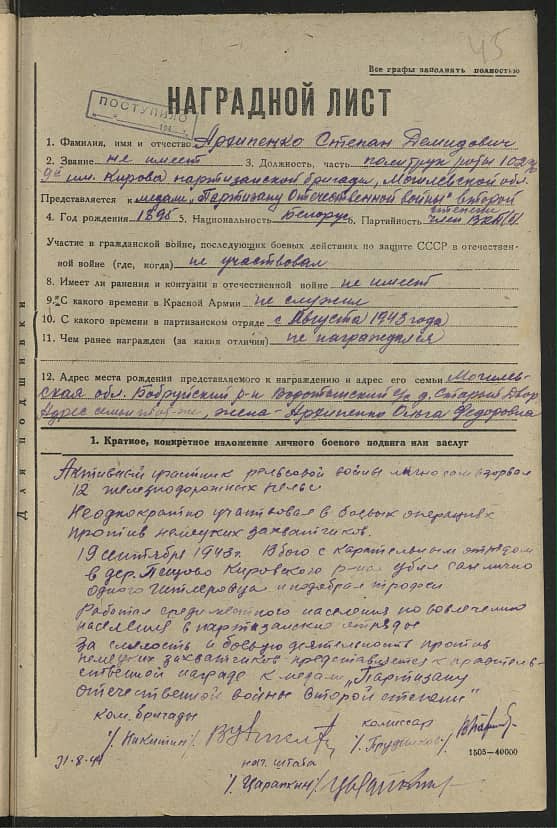 45
Все графы заполнять полностью
ПОСТУПИЛО
НАГРАДНОЙ ЛИСТ
1. Фамилия, имя и отчество Архипенко Степан Демидович
2. Звание не имеет 3. Должность, часть политрук роты 102
им. Кирова партизанской бригады, Могилевской обл.
Представляется к медали „Партизану Отечественной войны" второй
степени
4. Год рождения 1896 5. Национальность Белорус 6. Партийность член ВКП(б)
Участие в гражданской войне, последующих боевых действиях по защите СССР в отечествен-
ной войне (где, когда) не участвовал
8. Имеет ли ранения и контузии в отечественной войне не имеет
9. С какого времени в Красной Армии не служил
10. С какого времени в партизанском отряде с Августа 1943 года
11. Чем ранее награжден (за какия отличия) не награждался
12. Адрес места рождения представляемого к награждению и адрес его семьи Могилев-
ская обл. Бобруйский р-н д. Старый Двор
Адрес семьи жена - Архипенко Ольга Федоровна
Для подшивки
1. Краткое, конкретное изложение личного боевого подвига или заслуг
Активный участник рельсовой войны лично сам взорвал
12 железнодорожных рельс
Неоднократно участвовал в боевых операциях
против немецких захватчиков.
19 сентября 1943 г. В бою с карательным отрядом
в дер. Кировского р-на убил сам лично
одного гитлеровца и подобрал трофеи
Работал среди местного населения по вовлечению
населения в партизанские отряды
За смелость и боевую деятельность против
немецких захватчиков представляется к правитель-
ственной награде к медали „Партизану
отечественной войны второй степени"
Ком. бригады
комиссар
/Никитин/ /Прудников/
31-8-44
нач. штаба
1505—40000
/Царапкин/